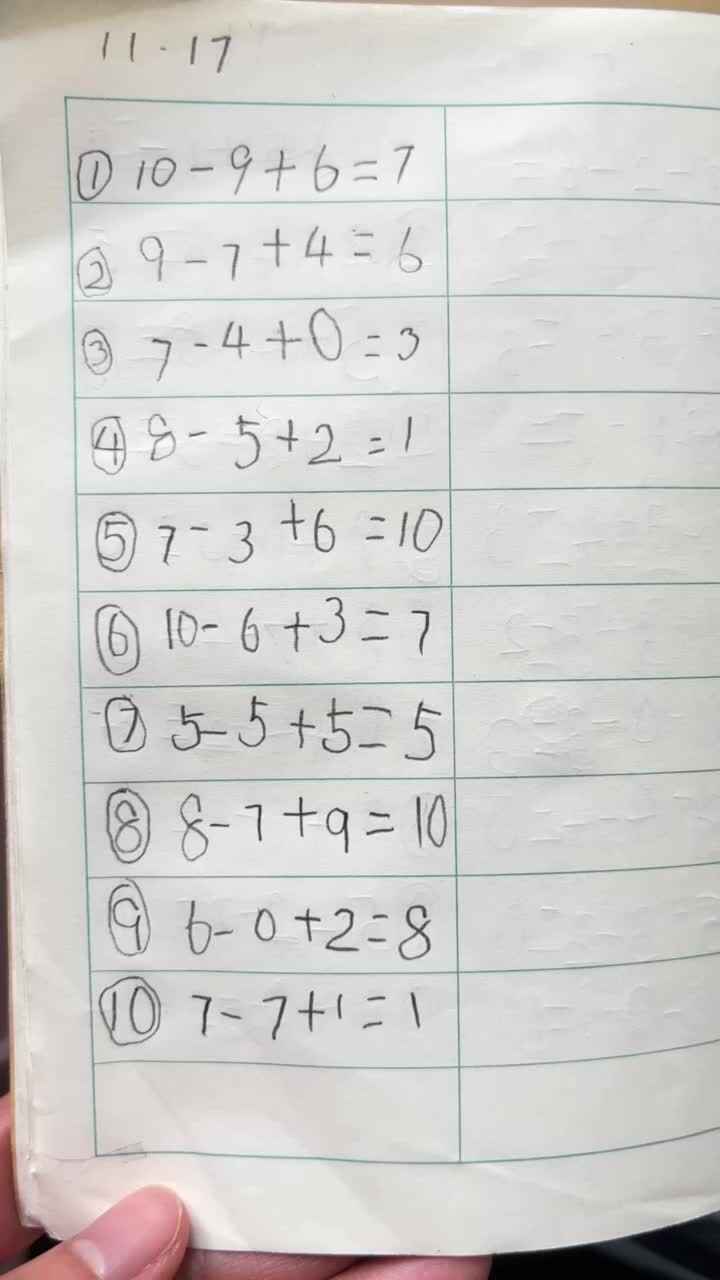 11.17
① 10-9+6=7
② 9-7+4=6
③ 7-4+0=3
④ 8-5+2=1
⑤ 7-3+6=10
⑥ 10-6+3=7
⑦ 5-5+5=5
⑧ 8-7+9=10
⑨ 6-0+2=8
⑩ 7-7+1=1